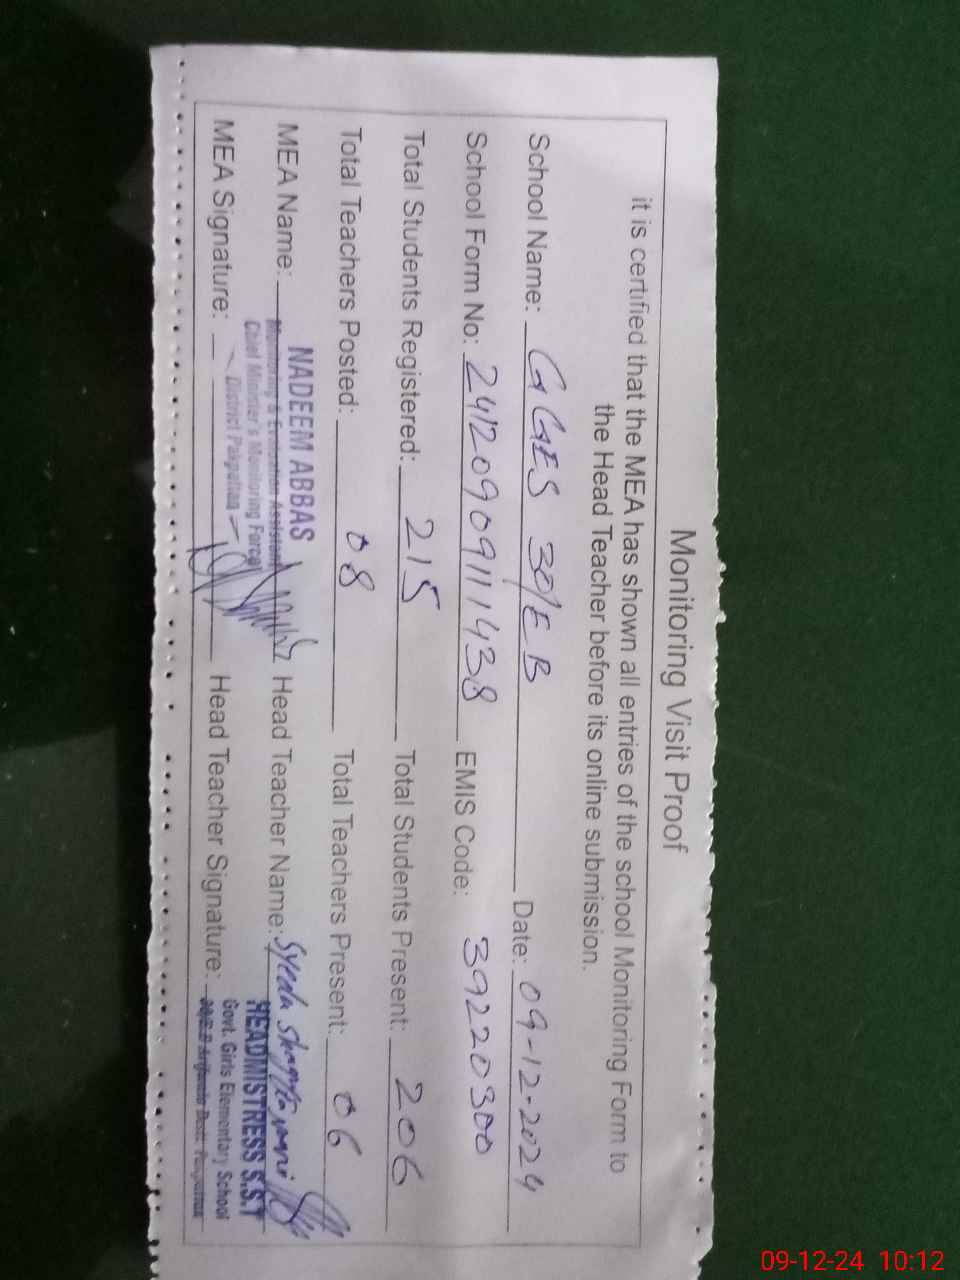 Monitoring Visit Proof
it is certified that the MEA has shown all entries of the school Monitoring Form to
the Head Teacher before its online submission.
School Name: GGES 30/EB Date: 09-12-2024
School Form No: 24120909111438 EMIS Code: 39220300
Total Students Registered: 215 Total Students Present: 206
Total Teachers Posted: 08 Total Teachers Present: 06
MEA Name: NADEEM ABBAS Head Teacher Name: Syeda
Monitoring & Evaluation Assistant
Chief Minister's Monitoring Force
District Pakpattan
HEADMISTRESS S.S.T
Govt. Girls Elementary School
MEA Signature: Head Teacher Signature:
09-12-24 10:12